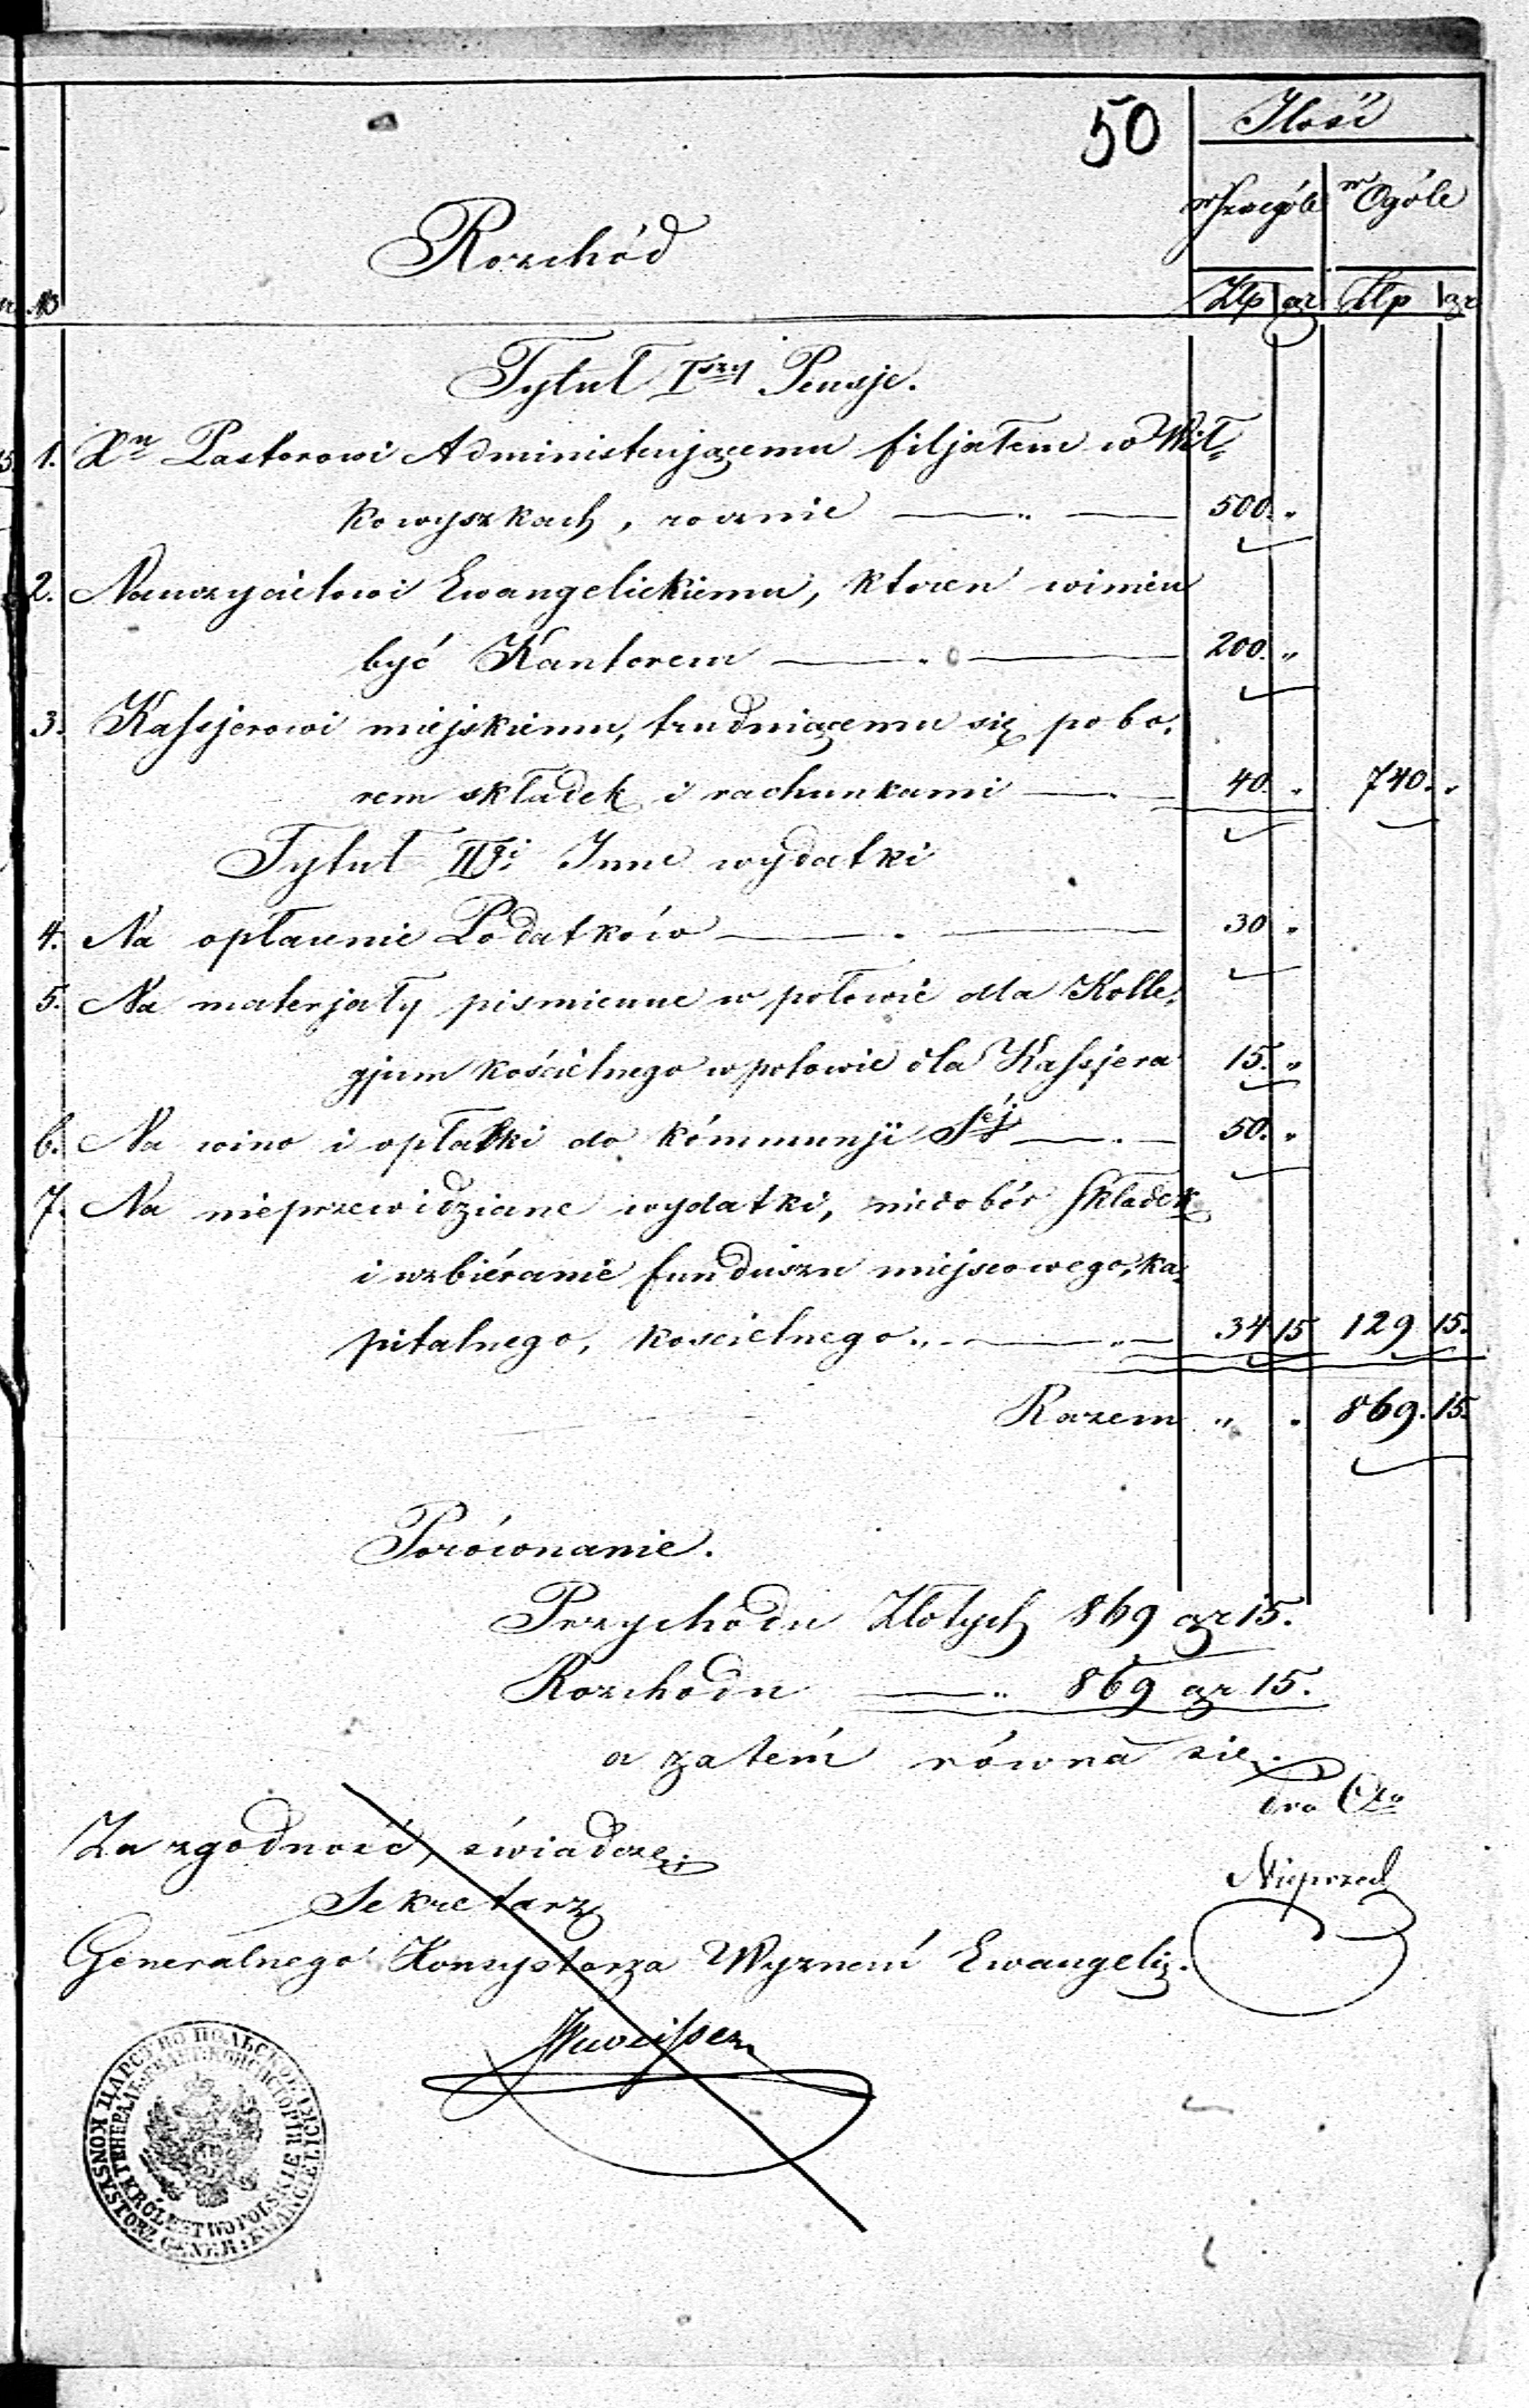 50
Ilość
w Szczególe w Ogóle
Rozchód
No Złp gr Złp gr
Tytuł Iszy Pensje.
1. Xu Pastorowi Administrującemu filjałem w Wił,
kowyszkach, rocznie 500. "
2. Nauczycielowi Ewangelickiemu, ktoren winien
być Kantorem 200. "
3. Kassjerowi miejskiemu, trudniącemu się pobo,
rem składek i rachunkami 40. " 740. "
Tytuł IIgi Inne wydatki
4. Na opłacenie Podatków 30 "
5. Na materjały pismienne w połowie dla Kolle,
gjum kościelnego w połowie dla Kassjera 15. "
6. Na wino i opłatki do kómmunji Sej 50. "
7. Na nieprzewidziane wydatki, niedobór składek
i uzbiéranie funduszu miejscowego, ka,
pitalnego, koscielnego 34 15 129 15.
Razem " " 869. 15.
Porównanie.
Przychodu Złotych 869 gr 15.
Rozchodu " 869 gr 15.
a zatém równa się.
Za zgodność, świadczę:
Sekretarz
Generalnego Konsystorza Wyznań Ewangelic.
ЦАРСТВО ПОЛЬСКОЕ
KONSYSTORZ GENER: EWANGIELICKI
KRÓLESTWO POLSKIE